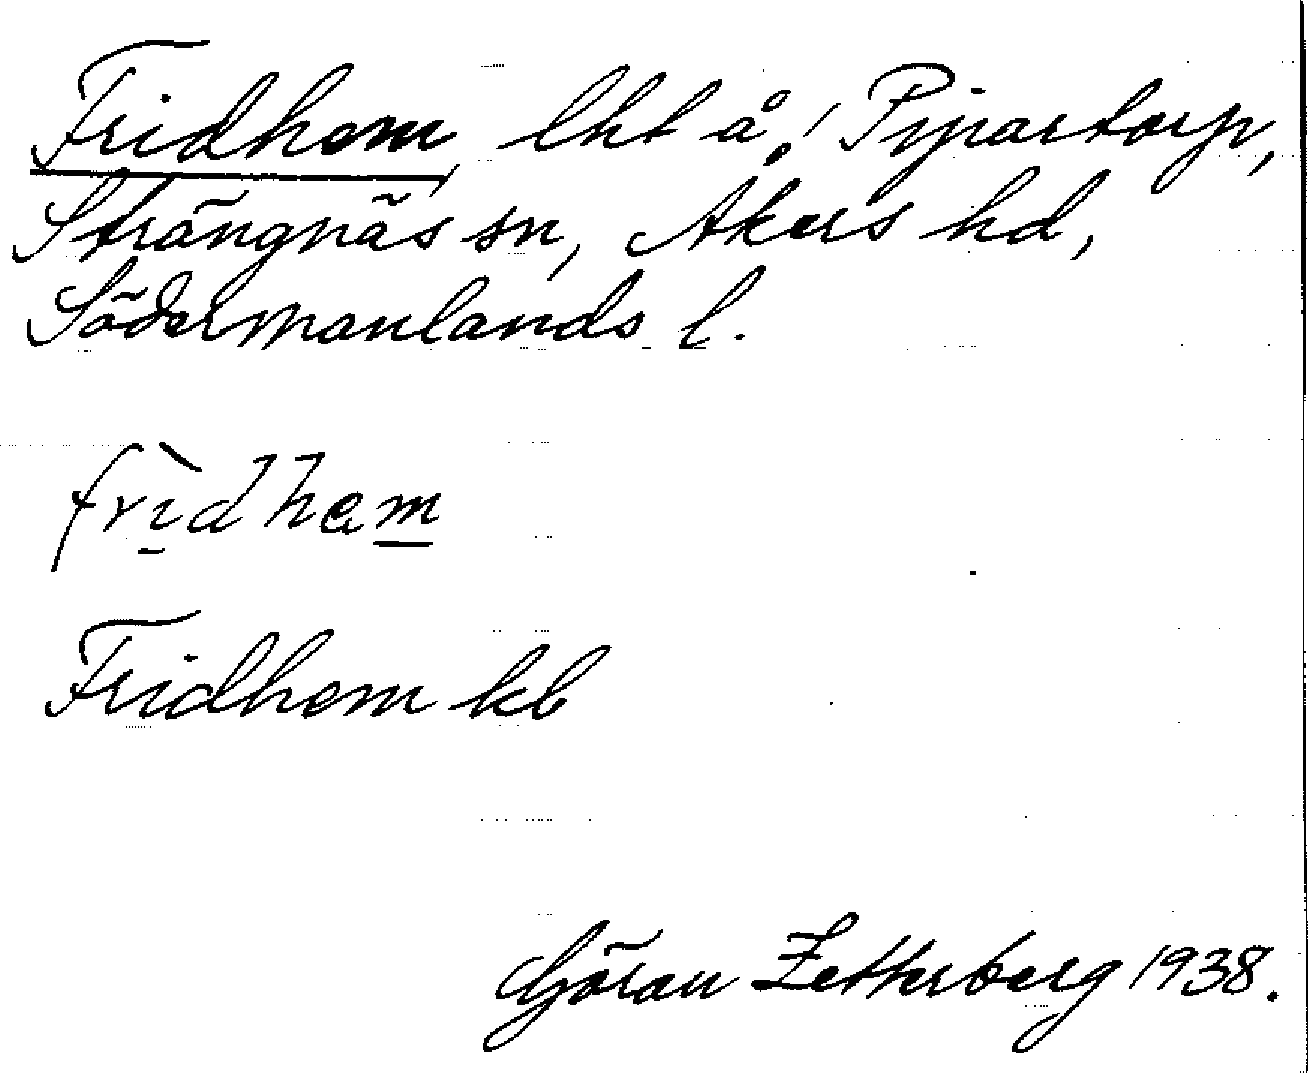 Fridhem, lht å ! Pipartorp,
Strängnäs sn, Åkers hd,
Södermanlands l.
frìdhem
Fridhem kb
Göran Zetterberg 1938.